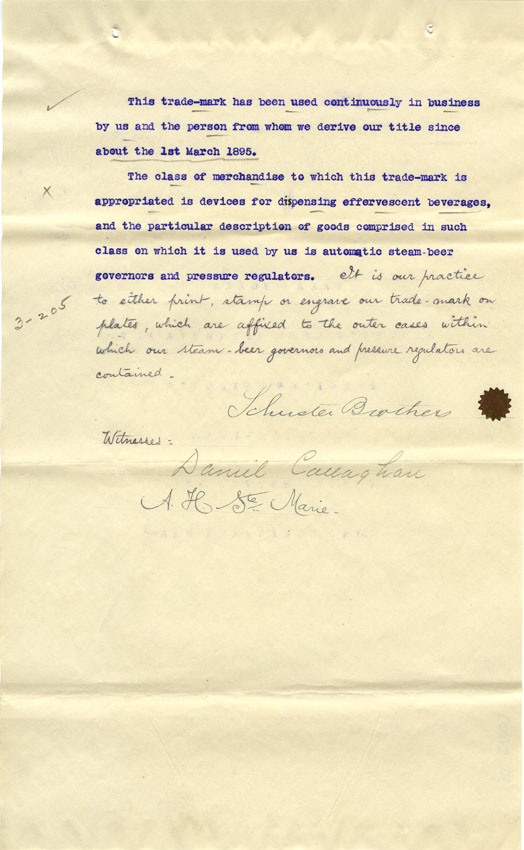 This trade-mark has been used continuously in business
by us and the person from whom we derive our title since
about the 1st March 1895.
The class of merchandise to which this trade-mark is
appropriated is devices for dispensing effervescent beverages,
and the particular description of goods comprised in such
class on which it is used by us is automatic steam-beer
governors and pressure regulators. It is our practice
to either print, stamp or engrave our trade-mark on
3-205
plates, which are affixed to the outer cases within
which our steam-beer governors and pressure regulators are
contained.
Schuster Brothers
Witnesses:
Daniel Callaghan
A. H. Ste. Marie.